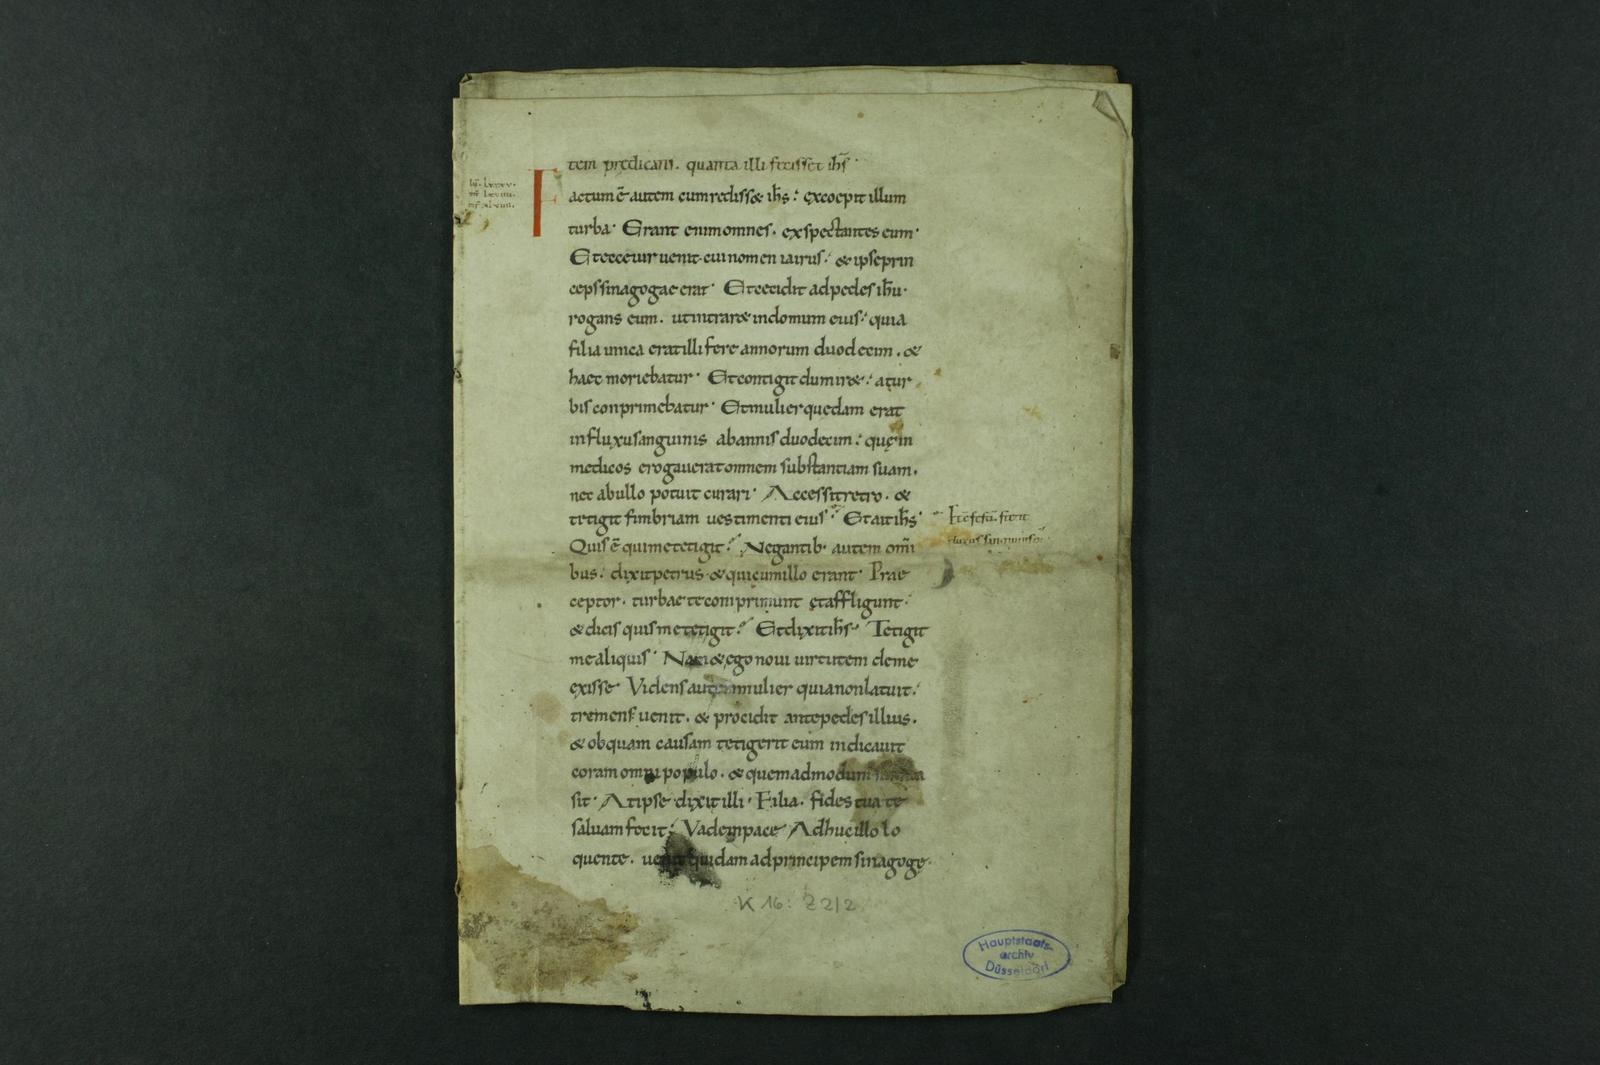 tem prędicans. quanta illi fecisset ihs̄
lū. lxxxv.
Factum ē autem cum rediss& ihs̄: excoepit illum
turba· Erant enim omnes. exspectantes eum·
Et ecce uir uenit. cui nomen iairus: & ipse prin
ceps sinagogae erat· Et cecidit ad pedes ihū·
rogans eum. ut intrar& in domum eius: quia
filia unica erat illi fere annorum duodecim. &
haec moriebatur· Et contigit dum ir&: a tur
bis conprimebatur· Et mulier quedam erat
in fluxu sanguinis ab annis duodecim: quę in
medicos erogauerat omnem substantiam suam.
nec ab ullo potuit curari· Accessit retro. &
tetigit fimbriam uestimenti eius· Et ait ihs̄·
Et cōfestī. stetit
fluxus sanguinis ei'
Quis ē qui me tetigit? Negantib· autem omī
bus: dixit petrus & qui cum illo erant· Prae
ceptor. turbae te comprimunt et affligunt·
& dicis quis me tetigit? Et dixit ihs̄· Tetigit
me aliquis· Nam & ego noui uirtutem de me
exisse Videns autem mulier quia non latuit:
tremens uenit. & procidit ante pedes illius.
& ob quam causam tetigerit eum indicauit
coram omni populo. & quemadmodum sanata
sit· At ipse dixit illi· Filia. fides tua te
saluam fecit: Vade in pace Adhuc illo lo
quente. uenit quidam ad principem sinagogę·
K 16: Z 2/2
Hauptstaats-
archiv
Düsseldorf